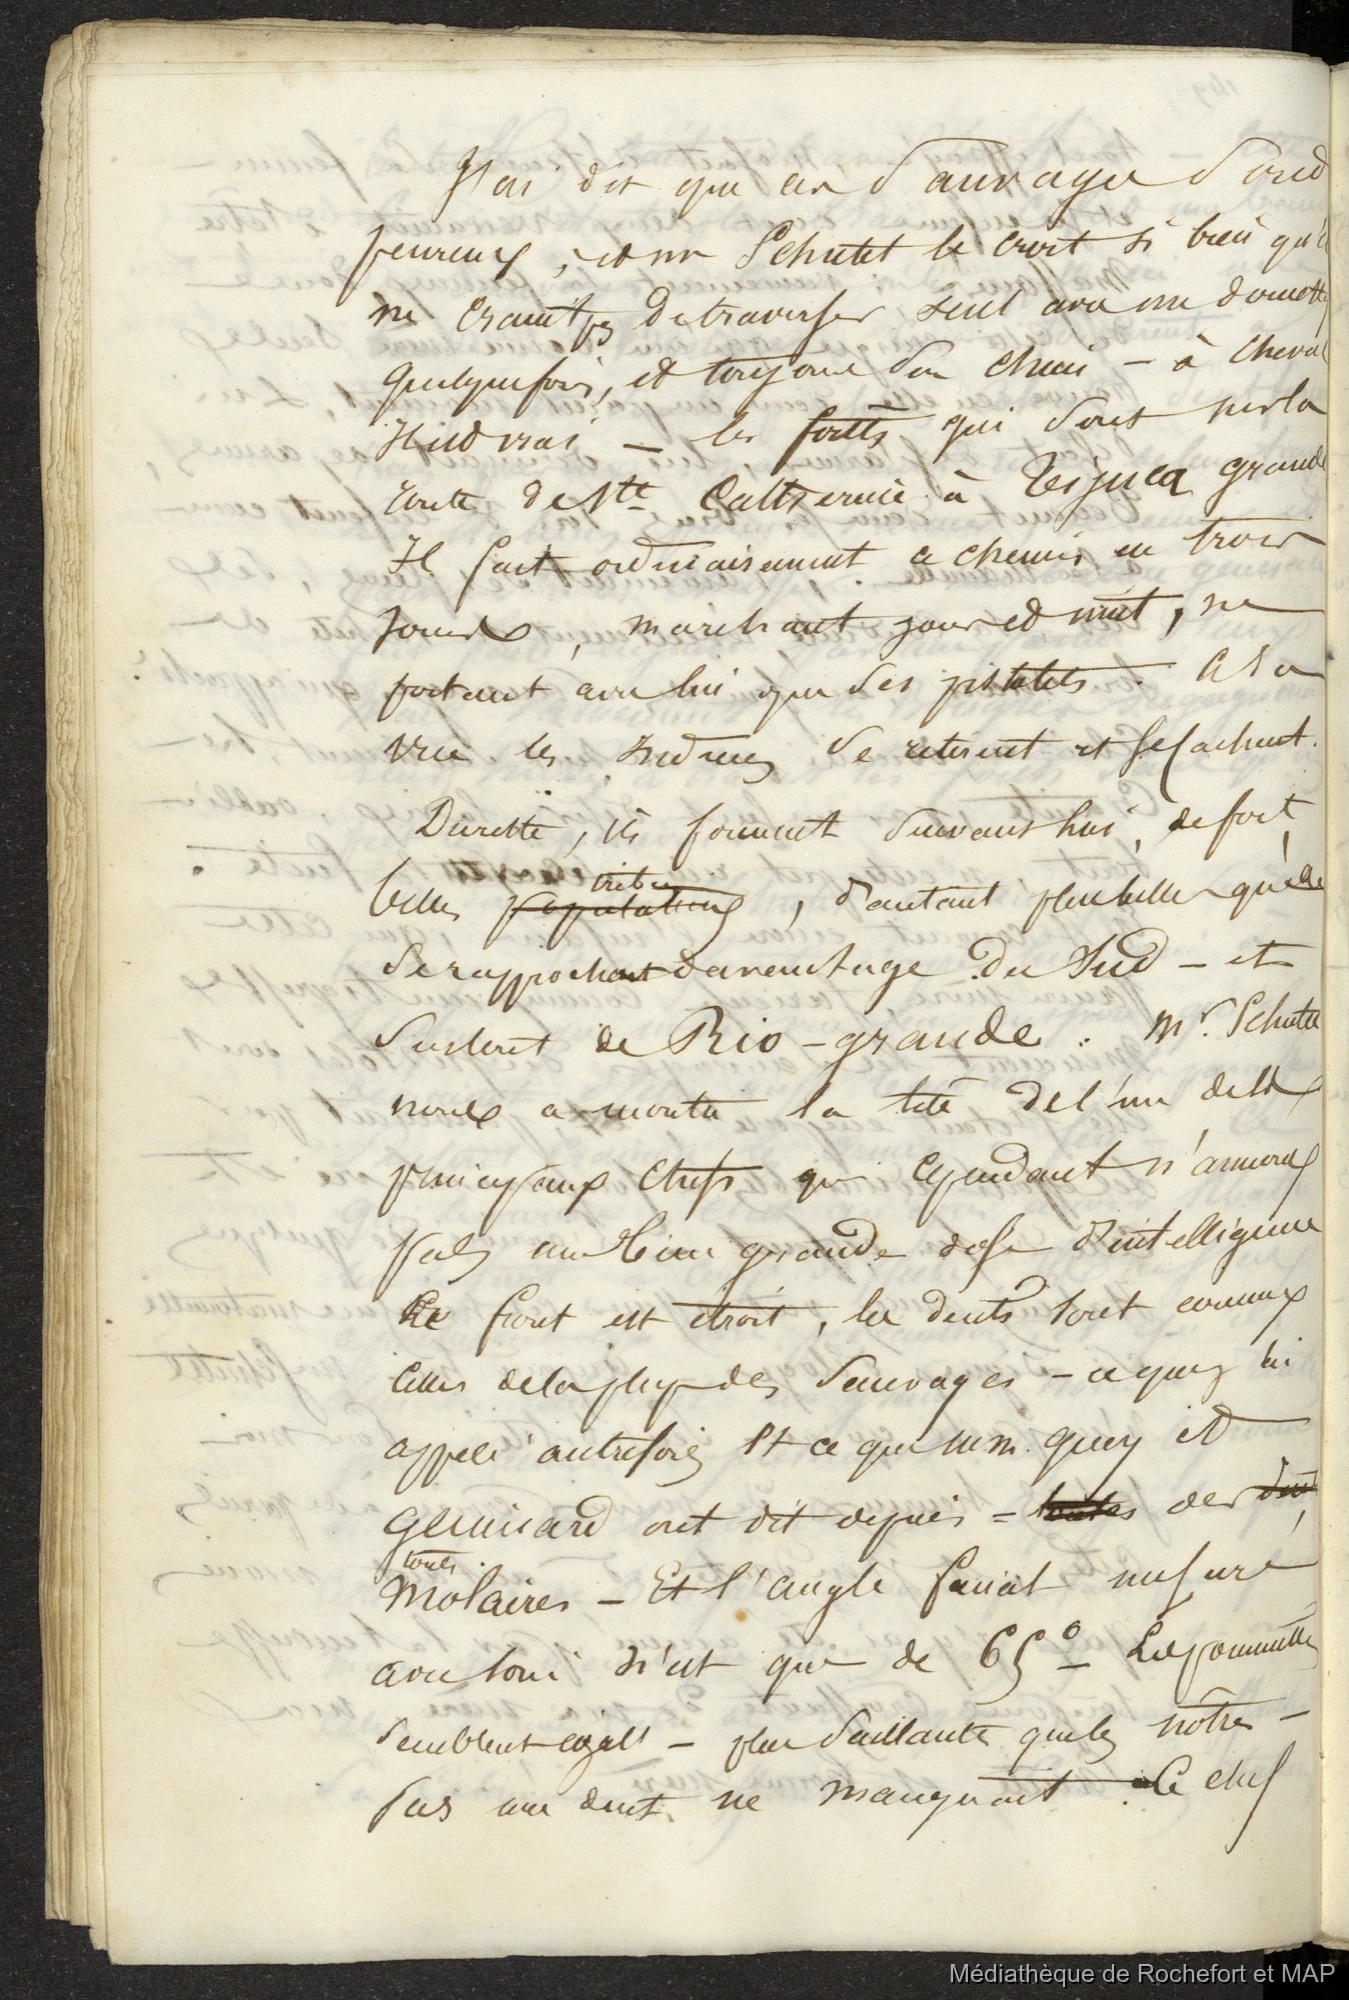 J'ai dit que ces Sauvages Sont
peureux, et mr Schutet le croit si bien qu'il
ne craint pas de traverser seul avec un domestique
quelquefois, et toujours Son chien - à cheval
Il est vrai - les forêts qui Sont sur la
route de Ste Catherine à Tijuca grande
Il fait ordinairement ce chemin en trois
jours, marchant jour et nuit, ne
portant avec lui que Ses pistolets. A Sa
vue les Indiens Se retirent et Se cachent.
Du reste, ils forment Suivant lui, de fort
belles populations tribus, d'autant plus belles qu'elles
Se rapprochent davantage du Sud - et
Surtout de Rio-grande. Mr. Schutet
nous a montré la tête de l'un de
principaux chefs qui cependant n'annonce
pas une bien grande dose d'intelligence
Le front est étroit, les dents Sont comme
celles de la plupart des Sauvages - ce que j'ai
appelé autrefois et ce que m.m. quoy et
Geimard ont dit depuis = toutes des dents
toutes
Molaires - Et l'angle facial mesuré
avec soin n'est que de 65° - Les pommettes
Semblent égales - plus Saillantes que les nôtres -
Pas une dent ne manquait. Ce chef
Médiathèque de Rochefort et MAP